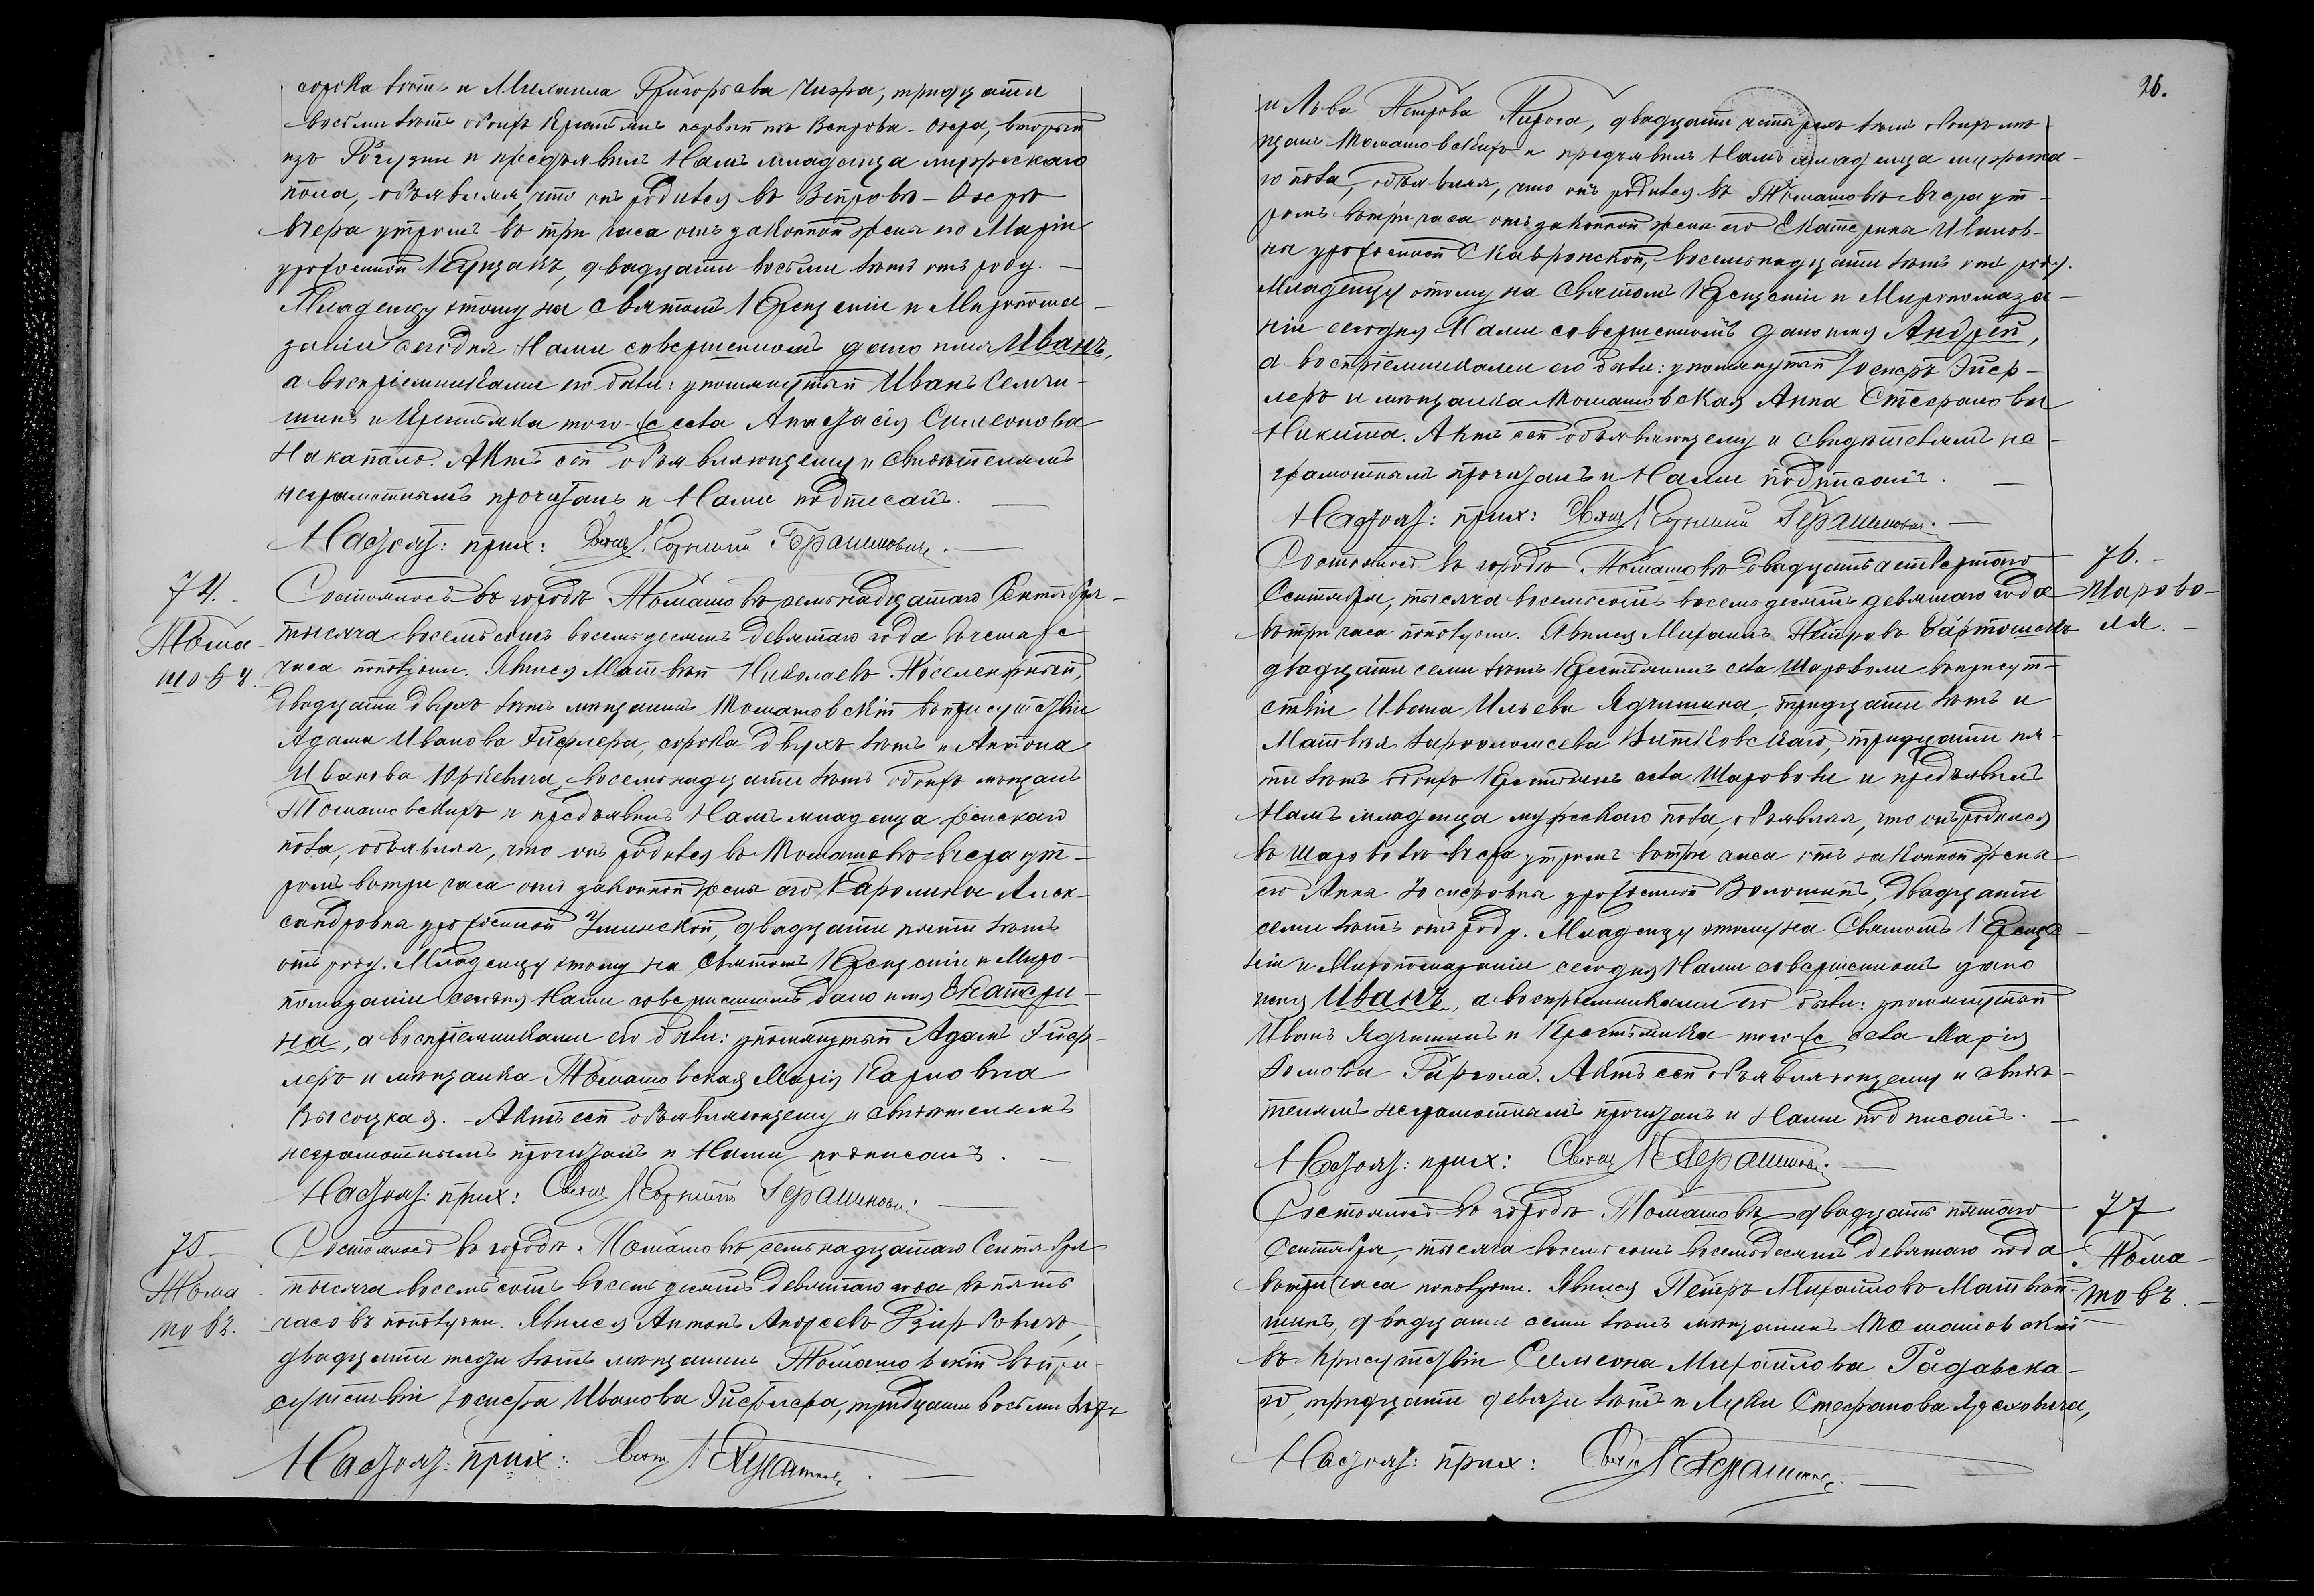 сорока лѣтъ и Михаила Григорьева Чизра, тридцати
восьми лѣтъ обоихъ крестьянъ первый изъ Вепрова-Озера, вторый
изъ и предъявилъ Намъ младенца мужескаго
пола, объявляя, что онъ родился въ Вепровѣ-Озерѣ
вчера утромъ во три часа отъ законной жены его Маріи
урожденной двадцати восьми лѣтъ отъ роду. —
Младенцу этому на Святомъ Крещеніи и Муропома-
заніи сегодня Нами совершенномъ дано имя Иванъ,
а воспріемниками его были: упомянутый Иванъ Семчи-
шинъ и Крестьянка того-же села Анастасія Симеонова
Накапало. Актъ сей объявляющему и свидѣтелямъ
неграмотнымъ прочитанъ и Нами подписанъ. —
Настоят: прих: Свящ. Корнилій Герашимовичъ. —
74.
Тома-
шовъ.
Состоялось въ городѣ Томашовѣ семьнадцатаго Сентября
тысяча восемьсотъ восемьдесятъ девятаго года въ четыре
часа пополудни. Явился Матвѣй Николаевъ
двадцати двухъ лѣтъ мѣщанинъ Томашовскій въ присутствіи
Адама Иванова Гисплера, сорока двухъ лѣтъ и Антона
Иванова Юркевича, восемьнадцати лѣтъ обоихъ мѣщанъ
Томашовскихъ и предъявилъ Намъ младенца женскаго
пола, объявляя, что онъ родился въ Томашовѣ вчера ут-
ромъ въ три часа отъ законной жены его Каролины Алек-
сандровны урожденной двадцати пяти лѣтъ
отъ роду. Младенцу этому на Святомъ Крещеніи и Муро-
помазаніи сегодня Нами совершенномъ дано имя Екатери-
на, а воспріемниками его были: упомянутый Адамъ Гисп-
леръ и мѣщанка Томашовская Марія Карловна
Высоцкая. - Актъ сей объявляющему и свидѣтелямъ
неграмотнымъ прочитанъ и Нами подписанъ. —
Настоят: прих: Свящ Корнилій Герашимовичъ. —
75.
Тома
шовъ.
Состоялось въ городѣ Томашовѣ, семьнадцатаго Сентября
тысяча восемьсотъ восемьдесятъ девятаго года въ пять
часовъ пополудни. Явился Антонъ Андреевъ
двадцати лѣтъ мѣщанинъ Томашовскій въ при-
сутствіи Іосифа Иванова Гисплера, тридцати восьми лѣтъ
Настоят: прих: Свящ. К Герашимовичъ. —
26.
и Льва Петрова Пирога, двадцати четырехъ лѣтъ обоихъ мѣ-
щанъ Томашовскихъ и предъявилъ Намъ младенца мужеска-
го пола, объявляя, что онъ родился въ Томашовѣ вчера ут-
ромъ въ три часа отъ законной жены его Екатерины Иванов-
ны урожденной Скавронской, восемьнадцати лѣтъ отъ роду.
Младенцу этому на Святомъ Крещеніи и Муропомаза-
ніи сегодня Нами совершенномъ дано имя Андрей,
а воспріемниками его были: упомянутый Іосифъ Гисп-
леръ и мѣщанка Томашовская Анна Стефановна
Никита. Актъ сей объявляющему и свидѣтелямъ не-
грамотнымъ прочитанъ и Нами подписанъ. —
Настоят: прих: Свящ. Корнилій Герашимовичъ. —
76.
Шарово-
ля.
Состоялось въ городѣ Томашовѣ двадцать четвертаго
Сентября, тысяча восемьсотъ восемьдесятъ девятаго года
въ три часа пополудни. Явился Михаилъ Петровъ Бартошекъ
двадцати семи лѣтъ крестьянинъ села Шароволи въ присут-
ствіи Ивана Ильева Ядчишина, тридцати лѣтъ и
Матвѣя Варѳоломеева Витковскаго, тридцати пя-
ти лѣтъ обоихъ крестьянъ села Шароволи и предъявилъ
Намъ младенца мужескаго пола, объявляя, что онъ родился
въ Шароволѣ вчера утромъ въ три часа отъ законной жены
его Анны Іосифовны урожденной Волошинъ, двадцати
семи лѣтъ отъ роду. Младенцу этому на Святомъ Креще-
ніи и Муропомазаніи сегодня Нами совершенномъ дано
имя Иванъ, а воспріемниками его были: упомянутый
Иванъ Ядчишинъ и Крестьянка того-же села Марія
Гаргола. Актъ сей объявляющему и свидѣ-
телямъ неграмотнымъ прочитанъ и Нами подписанъ. —
Настоят: прих: Свящ К Герашимовичъ. —
77
Тома-
шовъ.
Состоялось въ городѣ Томашовѣ двадцать пятаго
Сентября, тысяча восемьсотъ восемьдесятъ девятаго года
въ три часа пополудни. Явился Петръ Михайловъ Матвѣй-
шинъ, двадцати семи лѣтъ мѣщанинъ Томашовскій
въ присутствіи Симеона Михайлова Гадавска-
го, тридцати девяти лѣтъ и Луки Стефанова
Настоят: прих: Свящ К Герашимовичъ. —